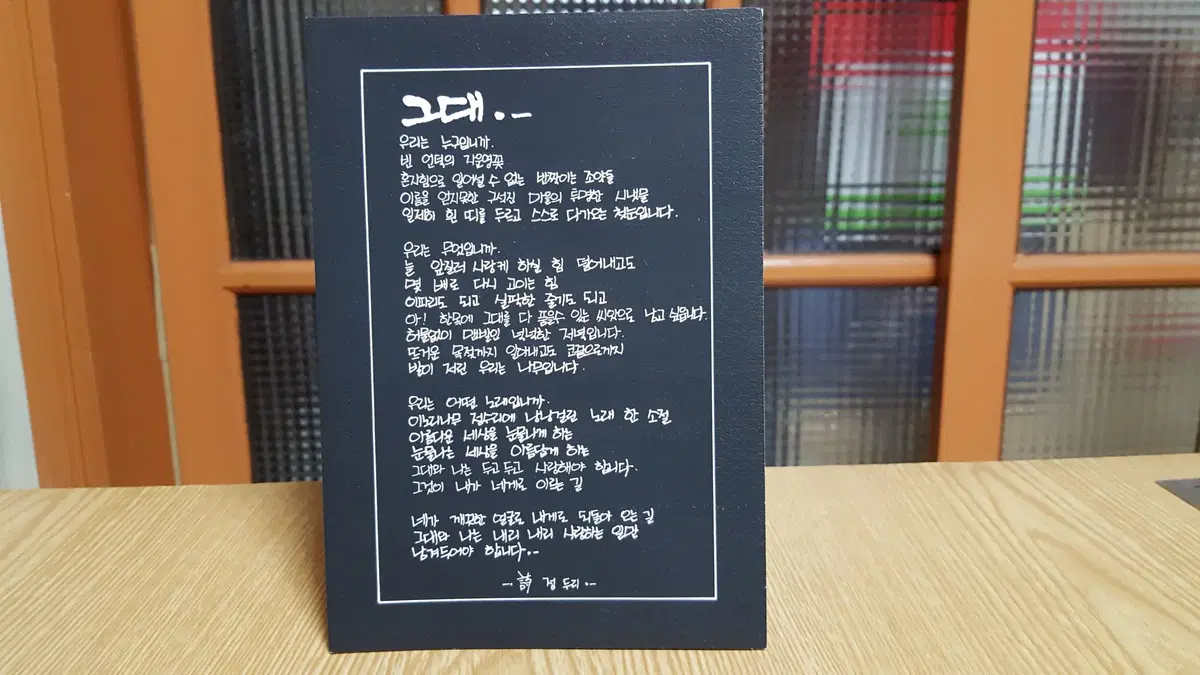 그대..
우리는 누구입니까.
빈 언덕의 자운영꽃
혼자힘으로 일어설 수 없는 반짝이는 조약돌
이름을 얻지못한 구석진 마을의 투명한 시냇물
일제히 흰 띠를 두르고 스스로 다가오는 첫눈입니다.
우리는 무엇입니까.
늘 앞질러 사랑케 하실 힘 덜어내고도
몇 배로 다시 고이는 힘
이파리도 되고 실팍한 줄기도 되고
아! 한몫에 그대를 다 품을수 있는 씨앗으로 남고 싶습니다.
허물없이 맨발인 넉넉한 저녁입니다.
뜨거운 목젖까지 알아내고도 코끝으로까지
발이 저린 우리는 나무입니다.
우리는 어떤 노래입니까.
이노리나무 정수리에 낭낭걸린 노래 한 소절
아름다운 세상을 눈물나게 하는
눈물나는 세상을 아름답게 하는
그대와 나는 두고두고 사랑해야 합니다.
그것이 내가 네게로 이르는 길
네가 깨끗한 얼굴로 내게로 되돌아 오는 길
그대와 나는 내리 내리 사랑하는 일만
남겨두어야 합니다..
-詩 정 두리.-